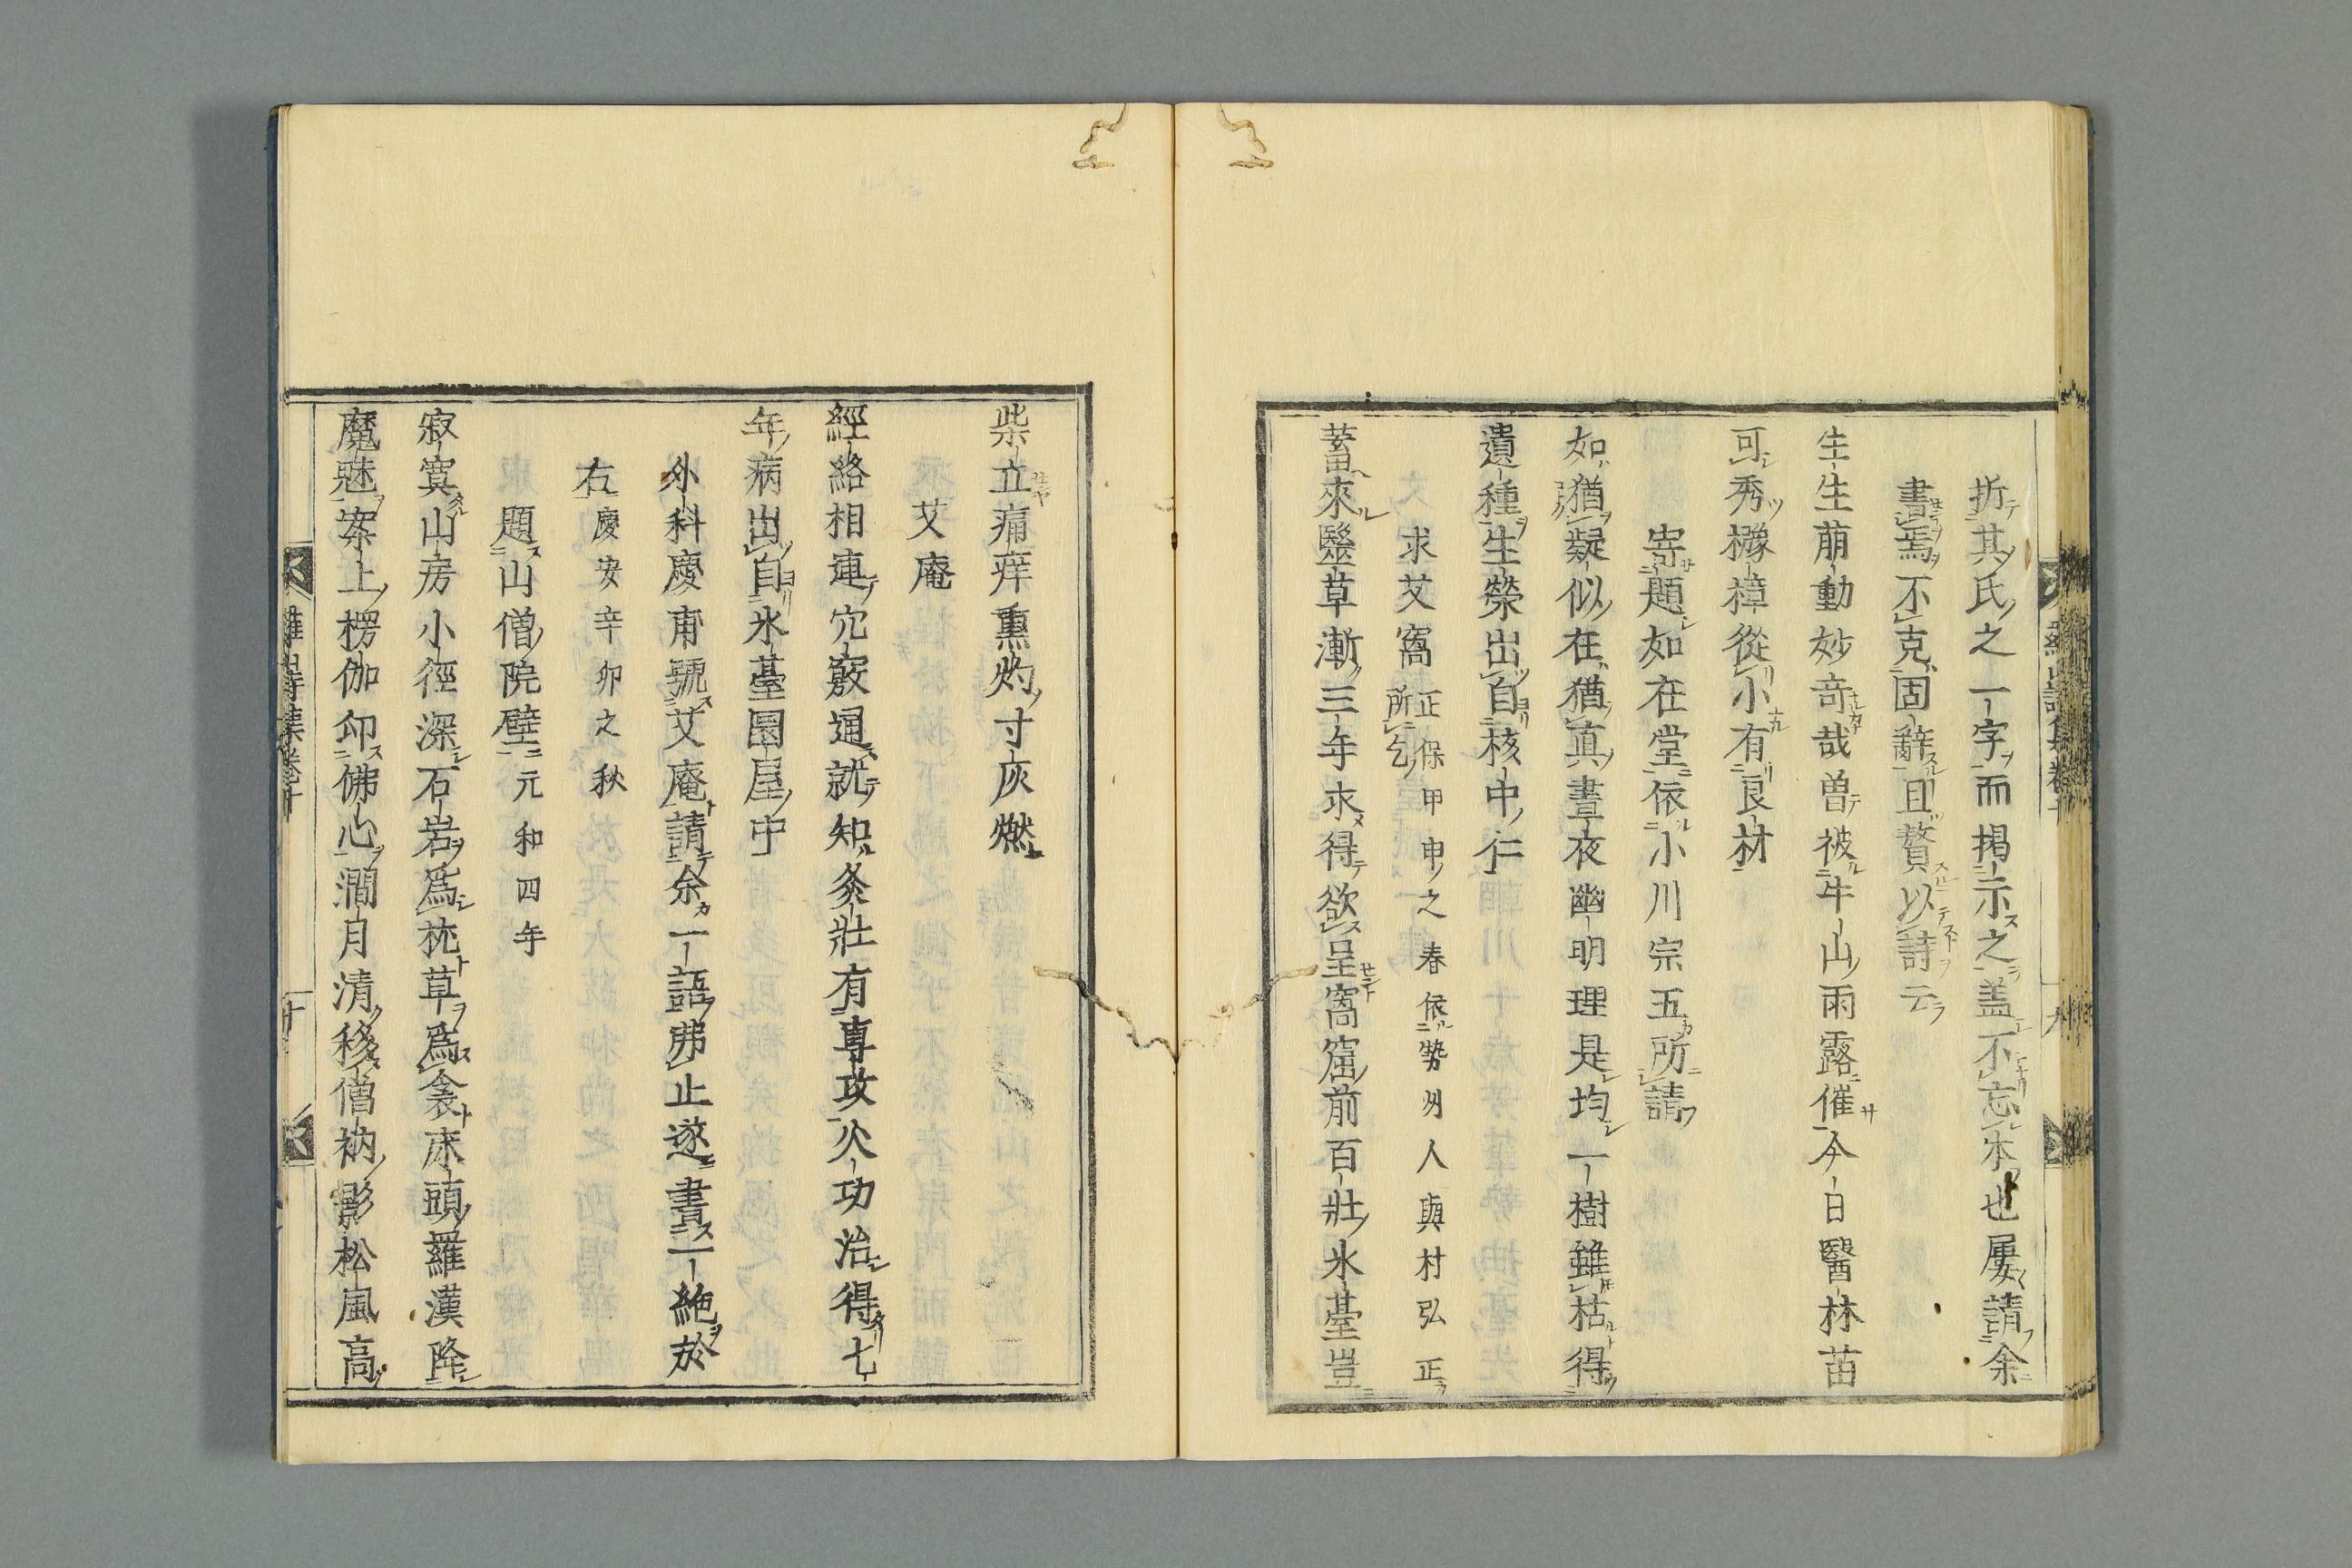 折其氏之一字而掲示之盖不忘本也屢請余
書焉不克固辭且贅以詩云
生生萠動妙奇哉曽被牛山雨露催今日醫林苗
可秀櫲樟從小有良材
寄題如在堂依小川宗五所請
如猶疑似在猶真晝夜幽明理是均一樹雖枯得
遺種生榮出自核中仁
求艾窩正保甲申之春依勢州人與村弘正
所乞
蓄來醫草漸三年求得欲呈窩窟前百壯氷䑓豈
柴立痛痒熏灼寸灰燃
艾庵
經絡相連穴竅通就知灸壯有專攻火功治得七
年病出自氷䑓園屋中
外科慶甫號艾庵請余一語弗止遂書一絶於
右慶安辛卯之秋
題山僧院壁元和四年
寂寞山房小徑深石岩爲枕草爲衾床頭羅漢降
魔魅案上楞伽印佛心澗月清移僧衲影松嵐高
羅山詩集卷十
九
羅山詩集卷十
十